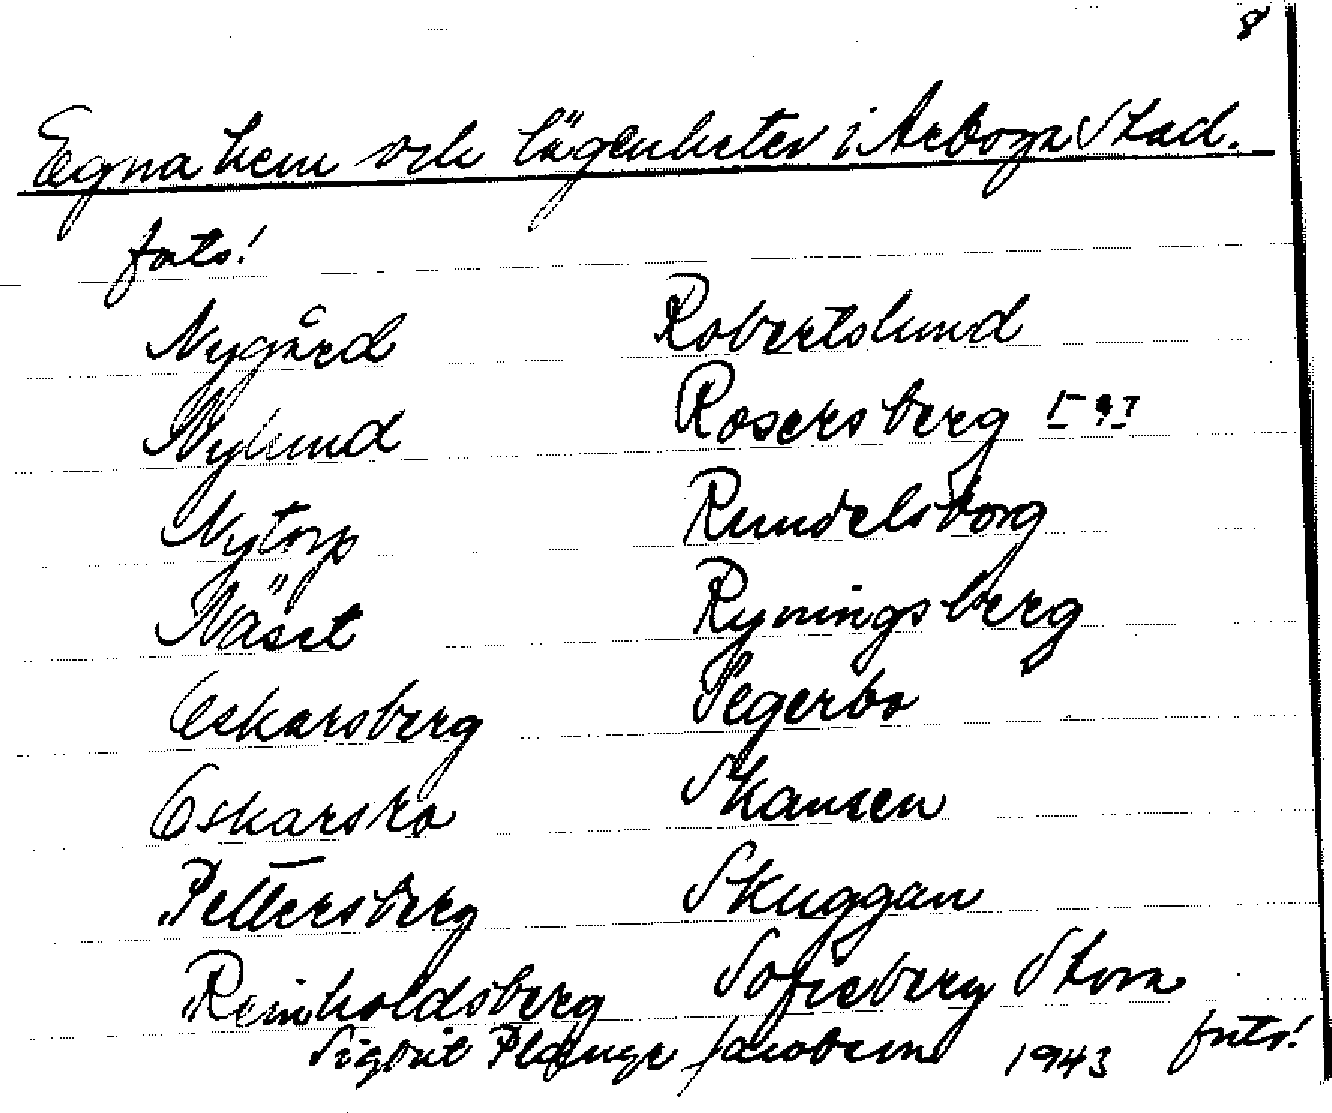 8
Egna hem och lägenheter i Arboga Stad.
forts!
Nygård
Nylund
Nytorp
Näset
Oskarsberg
Oskarsro
Pettersberg
Reinholdsberg
Robertslund
Rosersberg I o. II
Rundelsborg
Ryningsberg
Segerbo
Skansen
Skuggan
Sofieberg Stora
Sigbrit Plænge Jacobson 1943 forts!